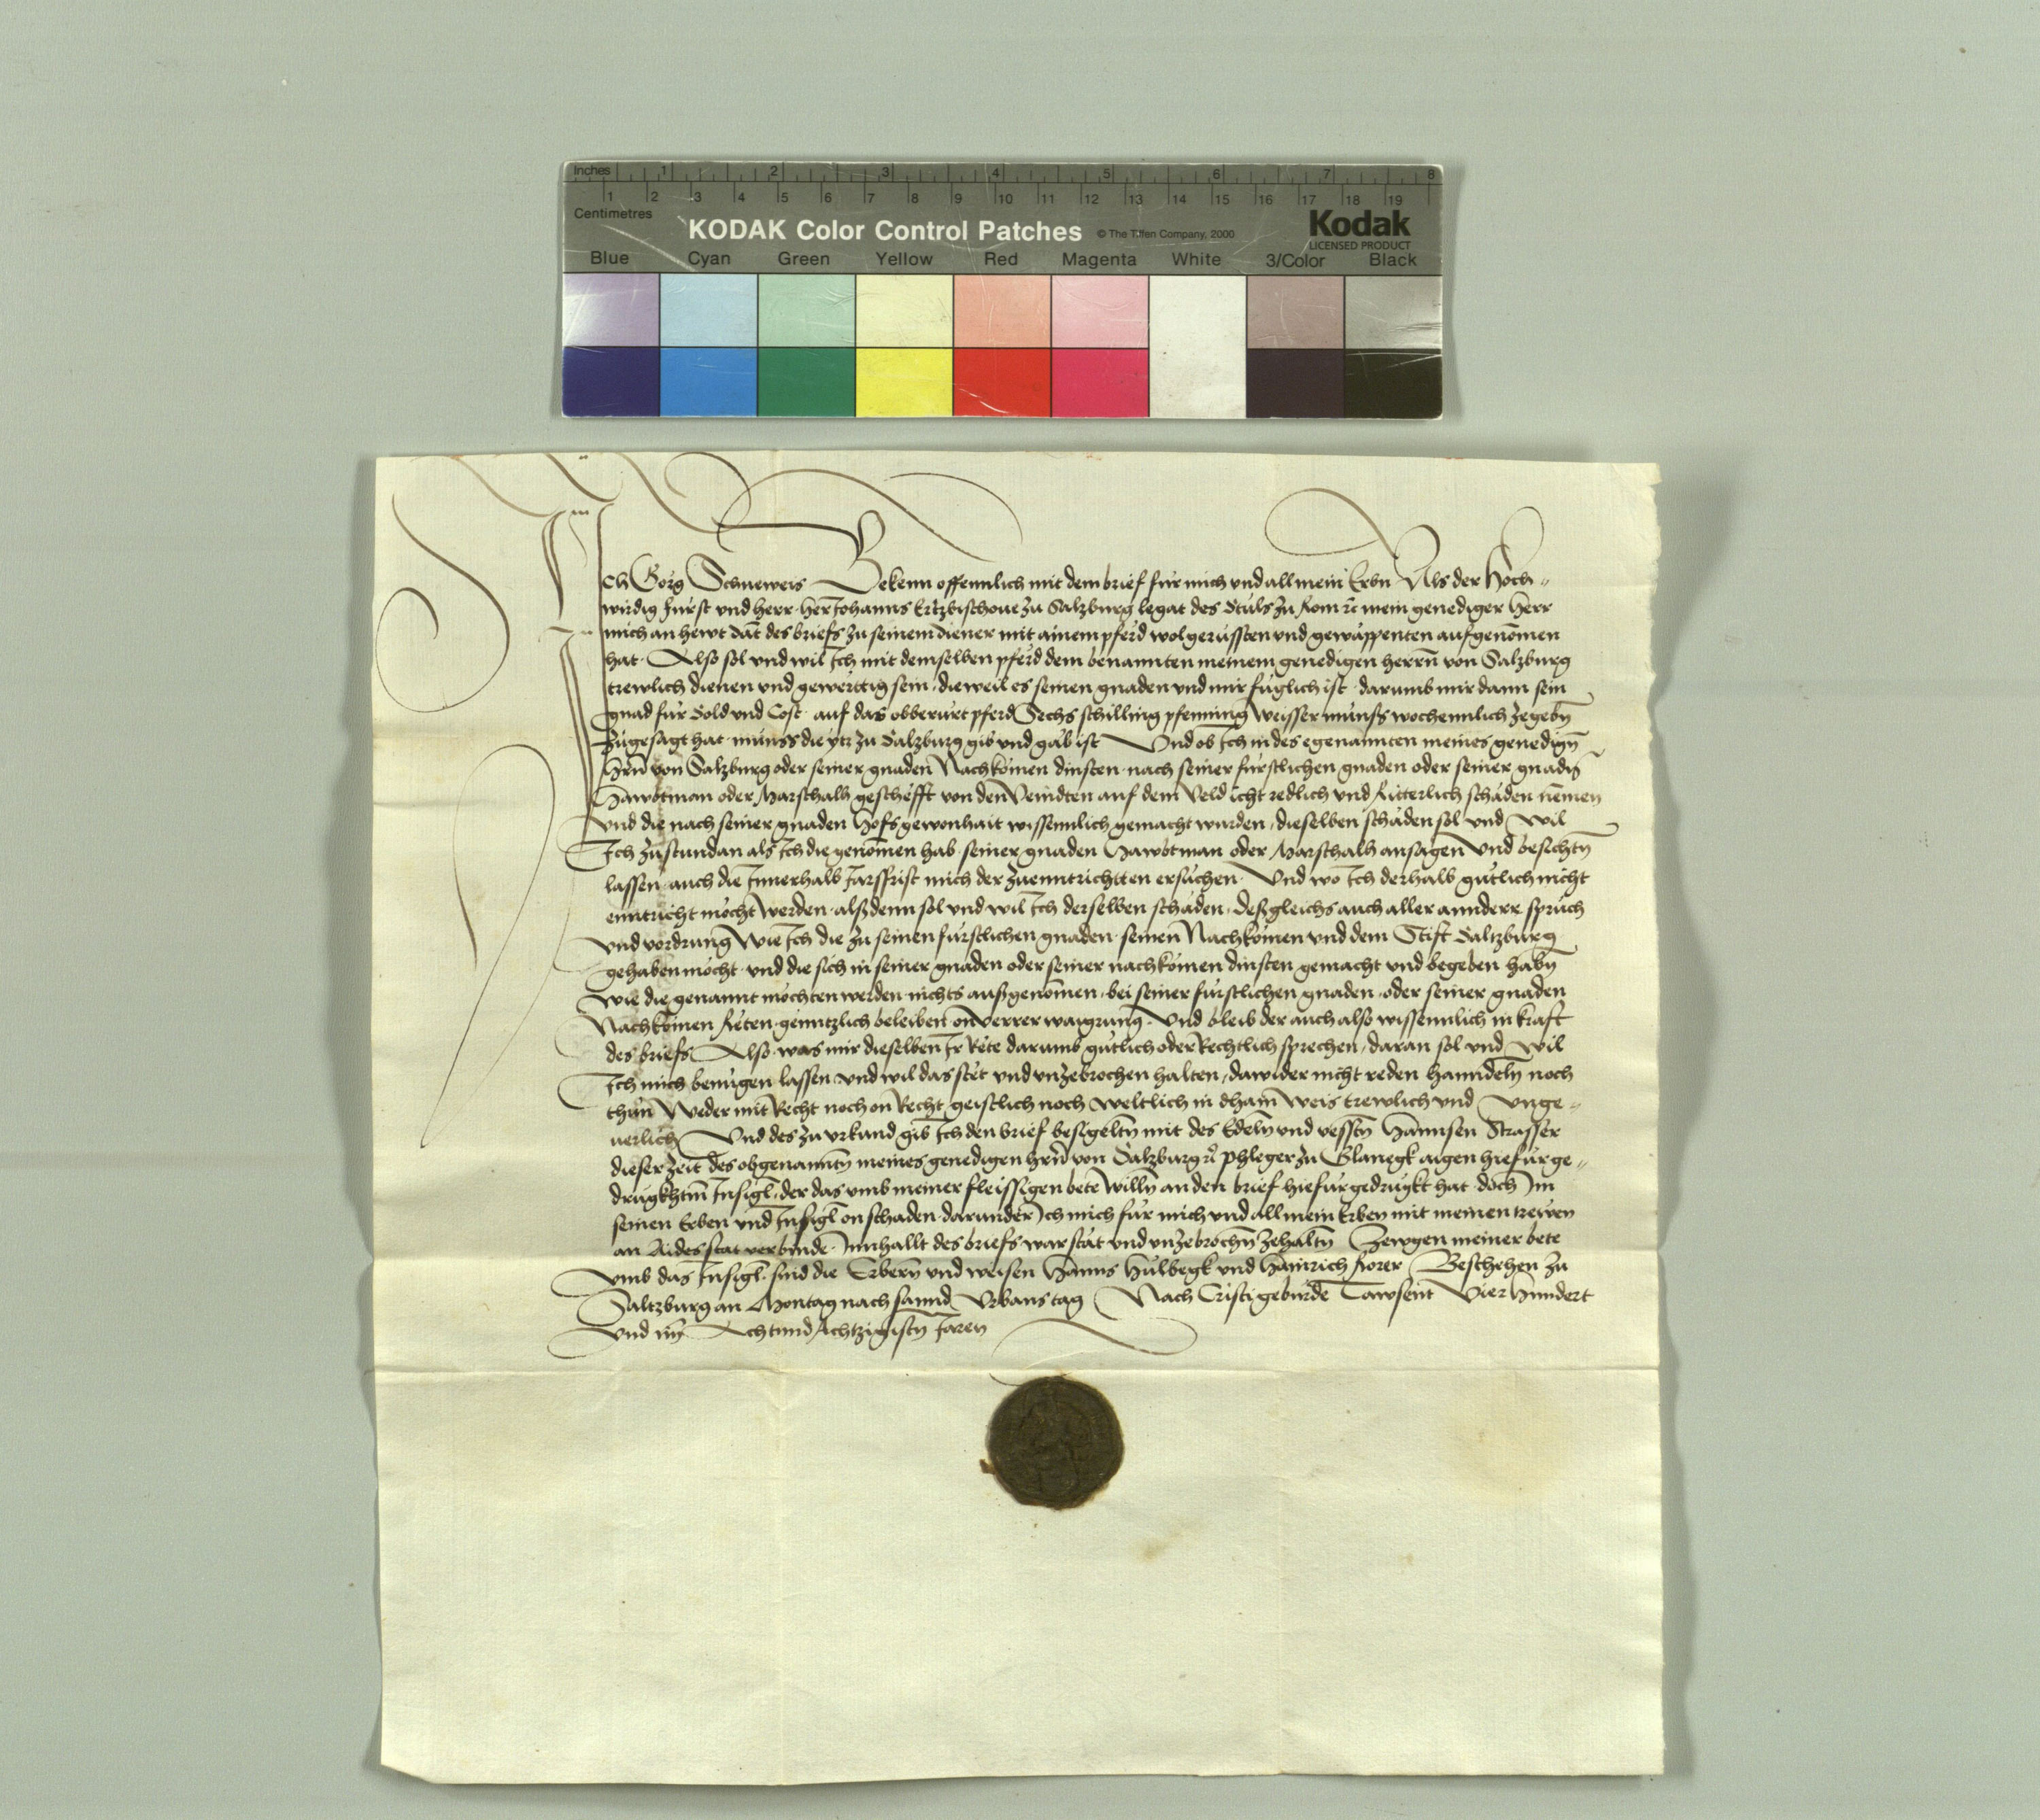 Inches 1 2 3 4 5 6 7 8
1 2 3 4 5 6 7 8 9 10 11 12 13 14 15 16 17 18 19
Centimetres
KODAK Color Control Patches © The Tiffen Company, 2000 Kodak
LICENSED PRODUCT
Blue Cyan Green Yellow Red Magenta White 3/Color Black
Ich Gorg Schneweis Bekenn offennlich mit dem brief fur mich und all mein Erbn Als der Hoch-
wirdig furst und herr herr Johanns Ertzbischove zu Salzburg legat des Stuls zu Rom rc mein genediger Herr
mich an hewt dat des briefs zu seinem diener mit ainem pferd wolgerussten und gewappenten aufgenomen
hat. Also sol und wil Ich mit demselben pferd dem benannten meinem genedigen herrn von Salzburg
trewlich dienen und gewerttig sein, dieweil es seinen gnaden und mir fuglich ist. darumb mir dann sein
gnad fur Sold und Cost auf das obberurt pferd Sechs schilling pfenning weisser munss wochennlich zegebn
zugesagt hat. munss die ytz zu Salzburg gib und gab ist Und ob Ich in des egenannten meines genedign
hrn von Salzburg oder seiner gnaden Nachkomen dinsten nach seiner furstlichen gnaden oder seiner gnadn
Hawbtman oder Marschalh geschefft von den Veindten auf dem Veld icht redlich und Ritterlich schaden nemen
und die nach seiner gnaden Hofsgewonhait wissennlich gemacht wurden, dieselben schaden sol und wil
Ich zustundan als Ich die genomen hab seiner gnaden Hawbtman oder Marschalh ansagen und besichtn
lassen, auch die Innerhalb Jarssfrist mich der zuenntrichtten ersuchen. Und wo Ich derhalb gutlich nicht
enntricht mocht werden. alßdenn sol und wil Ich derselben schaden, deßgleichs auch aller annderr spruch
und vordrung wie Ich die zu seinen furstlichen gnaden, seinen Nachkomen und dem Stift Saltzburg
gehaben mocht und die sich in seiner gnaden oder seiner nachkomen dinsten gemacht und begeben habn
wie die genannt mochten werden nichts außgenomen, bei seiner furstlichen gnaden, oder seiner gnaden
Nachkomen Reten genntzlich beleiben on verrer waigrung. Und bleib der auch also wissennlich in kraft
des briefs Also was mir dieselben Ir Rete darumb gutlich oder Rechtlich sprechen, daran sol und wil
Ich mich benugen lassen und wil das stet und unzebrochen halten, dawider nicht reden hanndeln noch
thun weder mit Recht noch on Recht geistlich noch weltlich in dhain weis trewlich und unge-
uerlich Und des zu urkund gib Ich den brief besigeltn mit des Edeln und vesstn Hannsen Strasser
dieser zeit des obgenanntn meines genedigen hrn von Salzburg rc phleger zu Glanegk aigen hiefurge-
drugkhtm Insigl, der das umb meiner fleissigen bete willn an den brief hiefurgedrugkt hat. doch Im
seinen Erben und Insigl on schaden darunder Ich mich fur mich und all mein Erben mit meinen trewen
an Aides stat verbinde. Innhallt des briefs war stat und unzebrochn zehaltn Zewgen meiner bete
umb das Insigl. sind die Erbern und weisen Hanns Hulbegk und Hainrich Rorer Beschehen zu
Saltzburg an Montag nach sannd Urbans tag Nach Cristi geburde Tawsent Vierhundert
und im Achtundachtzigistn Jaren